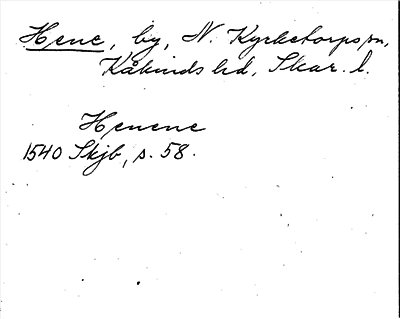 Hene, by, N. Kyrketorps sn,
Kåkinds hd, Skar. l.
Henene
1540 Skjb, s. 58.